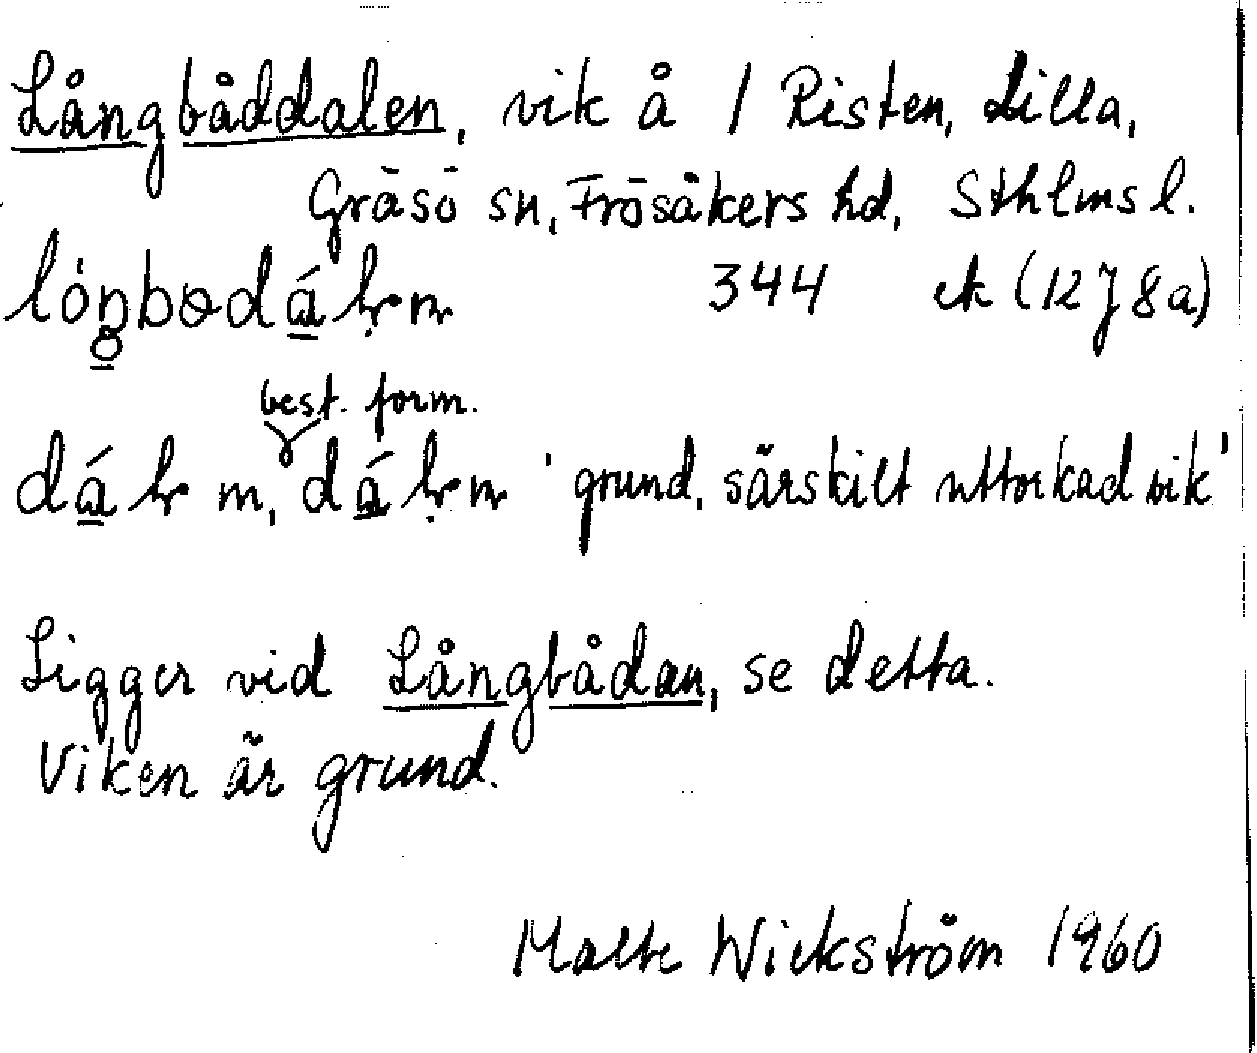 Långbåddalen, vik å / Risten, Lilla,
Gräsö sn, Frösåkers hd, Sthlms l.
344 ek (12J 8a)
best. form.
'grund, särskilt uttorkad vik'
Ligger vid Långbådan, se detta.
Viken är grund.
Malte Wickström 1960